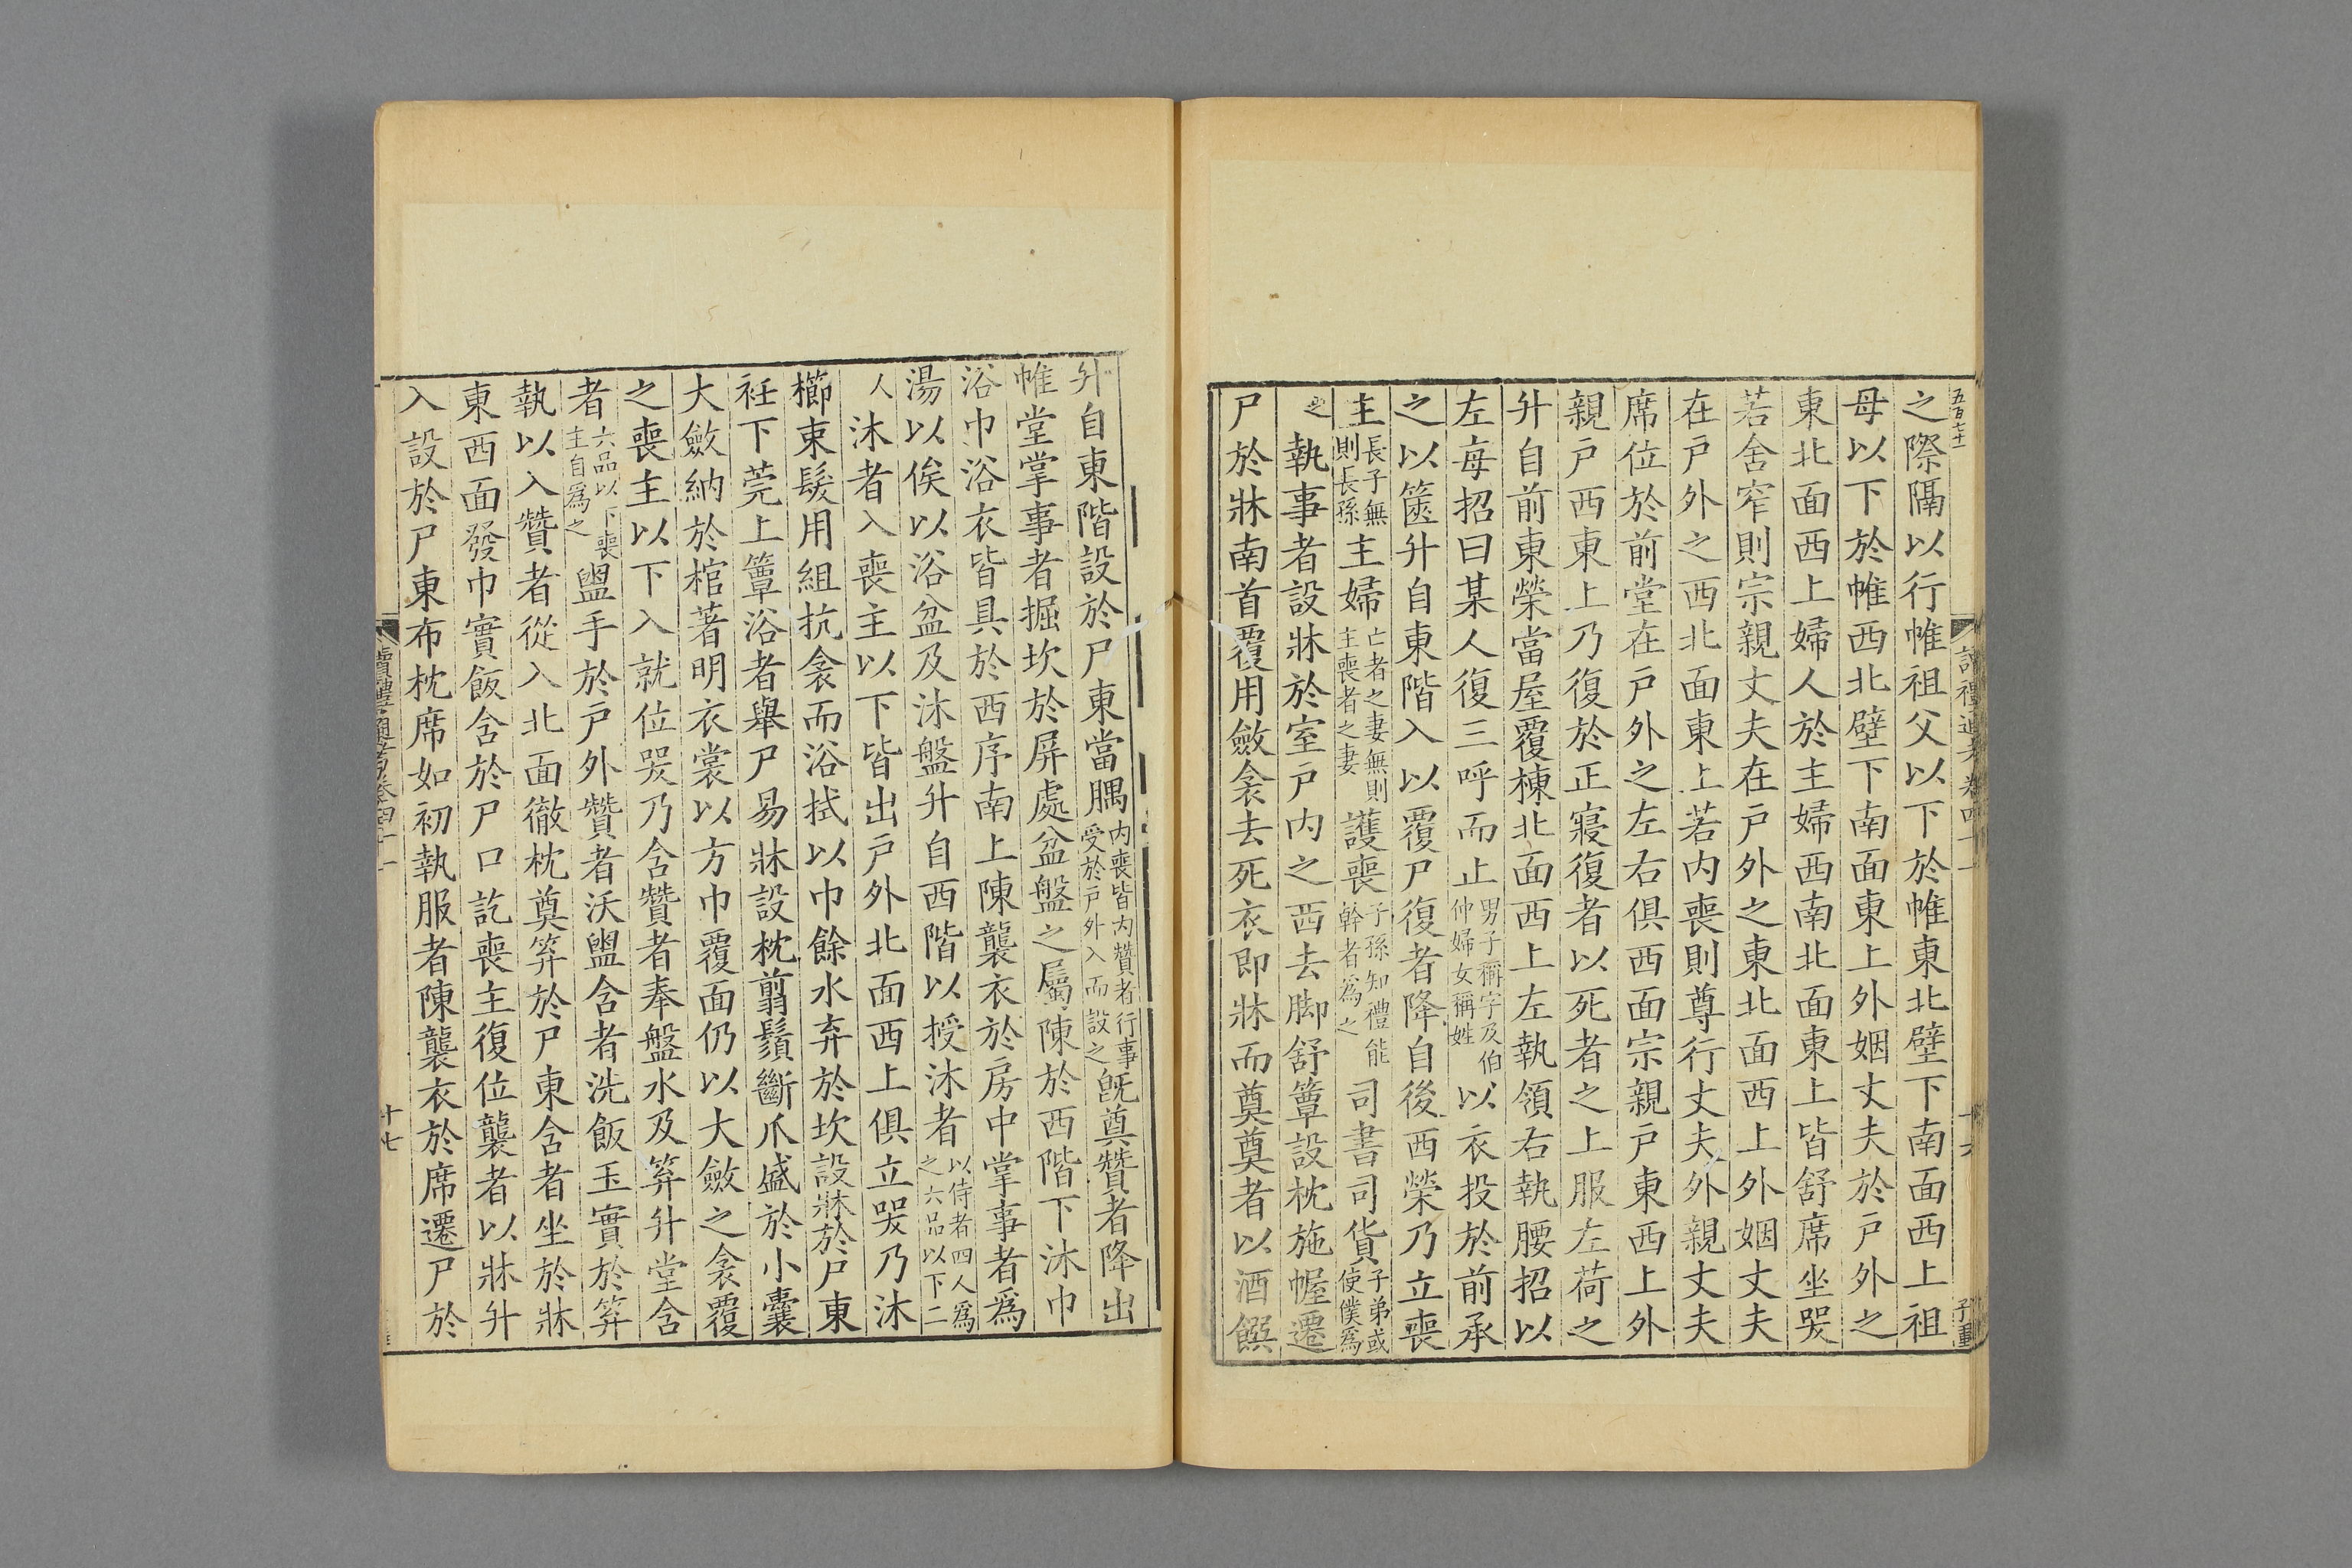 五百七十一
讀禮通考卷四十一
十六
之際隔以行帷祖父以下於帷東北壁下南面西上祖
母以下於帷西北壁下南面東上外姻丈夫於戶外之
東北面西上婦人於主婦西南北面東上皆舒席坐哭
若舍窄則宗親丈夫在戶外之東北面西上外姻丈夫
在戶外之西北面東上若內喪則尊行丈夫外親丈夫
席位於前堂在戶外之左右俱西面宗親戶東西上外
親戶西東上乃復於正寢復者以死者之上服左荷之
升自前東榮當屋覆棟北面西上左執領右執腰招以
左每招曰某人復三呼而止男子稱字及伯仲婦女稱姓以衣投於前承
之以篋升自東階入以覆尸復者降自後西榮乃立喪
主長子無則長孫主婦亡者之妻無則主喪者之妻護喪子孫知禮能幹者為之司書司貨子弟或使僕為
之執事者設牀於室戶內之西去脚舒簟設枕施幄遷
尸於牀南首覆用斂衾去死衣即牀而奠奠者以酒饌
升自東階設於尸東當腢內喪皆內贊者行事受於戶外入而設之既奠贊者降出
帷堂掌事者掘坎於屏處盆盤之屬陳於西階下沐巾
浴巾浴衣皆具於西序南上陳襲衣於房中掌事者為
湯以俟以浴盆及沐盤升自西階以授沐者以侍者四人為之六品以下二
人沐者入喪主以下皆出戶外北面西上俱立哭乃沐
櫛束髮用組抗衾而浴拭以巾餘水弃於坎設牀於尸東
衽下莞上簟浴者舉尸易牀設枕翦鬚斷爪盛於小囊
大斂納於棺著明衣裳以方巾覆面仍以大斂之衾覆
之喪主以下入就位哭乃含贊者奉盤水及笲升堂含
者六品以下喪主自為之盥手於戶外贊者沃盥含者洗飯玉實於笲
執以入贊者從入北面徹枕奠笲於尸東含者坐於牀
東西面發巾實飯含於尸口訖喪主復位襲者以牀升
入設於尸東布枕席如初執服者陳襲衣於席遷尸於
讀禮通考卷四十一
十七